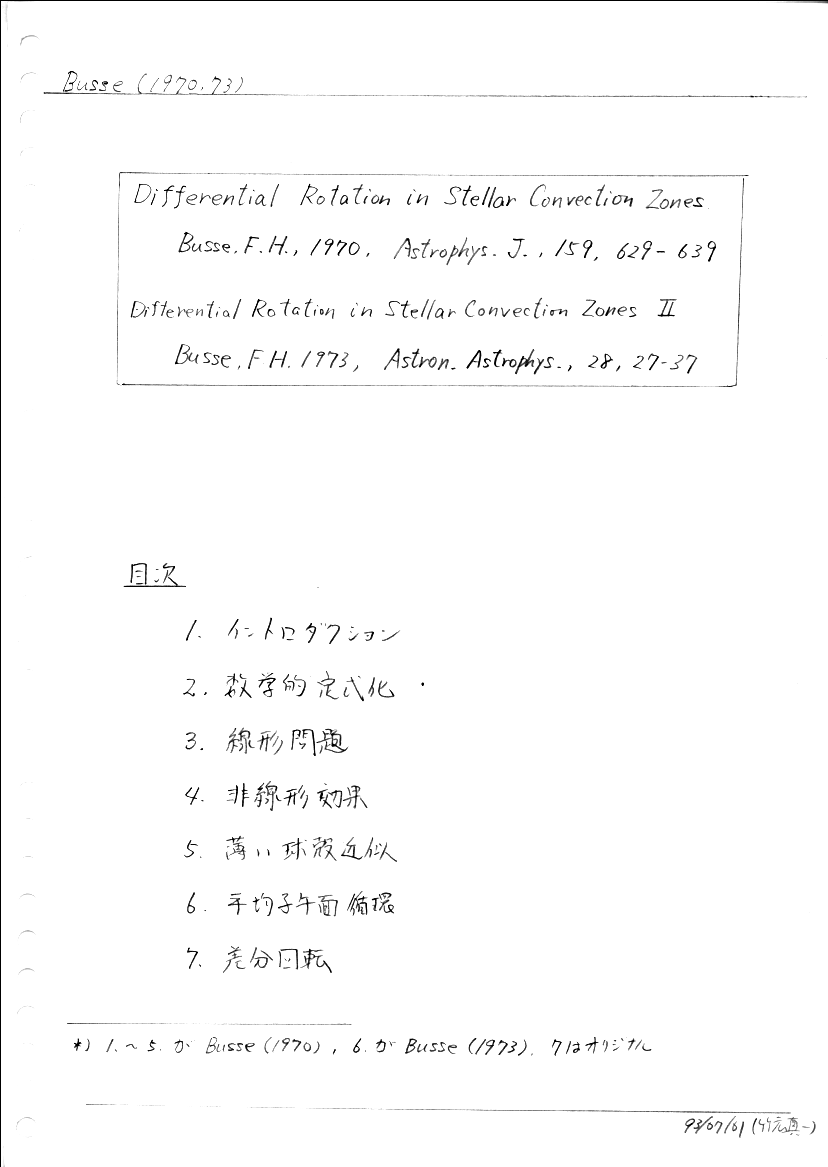 Busse (1970.73)
Differential Rotation in Stellar Convection Zones.
Busse. F.H., 1970, Astrophys. J., 159, 629-639
Differential Rotation in Stellar Convection Zones II
Busse. F H. 1973, Astron. Astrophys., 28, 27-37
目次
1. イントロダクション
2. 数学的定式化
3. 線形問題
4. 非線形効果
5. 薄い球殻近似
6. 平均子午面循環
7. 差分回転
*) 1.~5. が Busse (1970), 6. が Busse (1973). 7はオリジナル
93/07/01 (竹広真一)